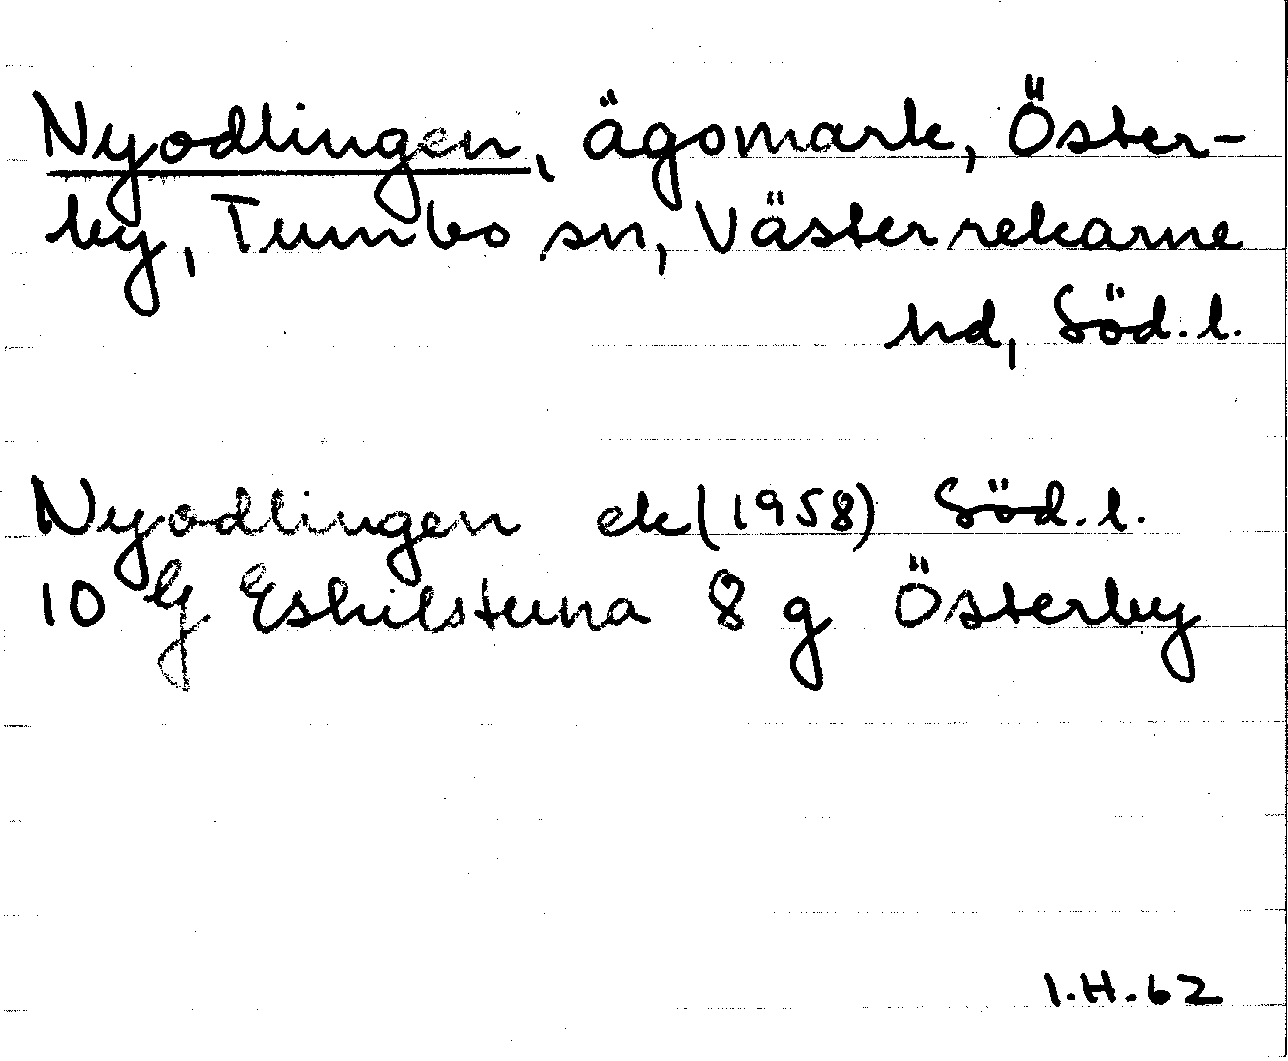 Nyodlingen, ägomark, Öster-
by, Tumbo sn, Västerrekarne
hd, Söd. l.
Nyodlingen ek (1958) Söd. l.
10 G Eskilstuna 8 g Österby
I.H. 62